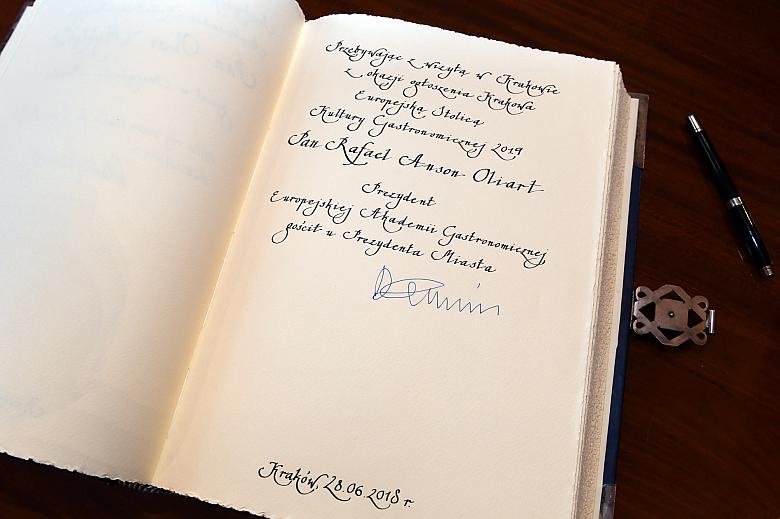 Przebywając z wizytą w Krakowie
z okazji ogłoszenia Krakowa
Europejską Stolicą
Kultury Gastronomicznej 2019
Pan Rafael Anson Oliart
Prezydent
Europejskiej Akademii Gastronomicznej
gościł u Prezydenta Miasta
Kraków, 28.06.2018 r.